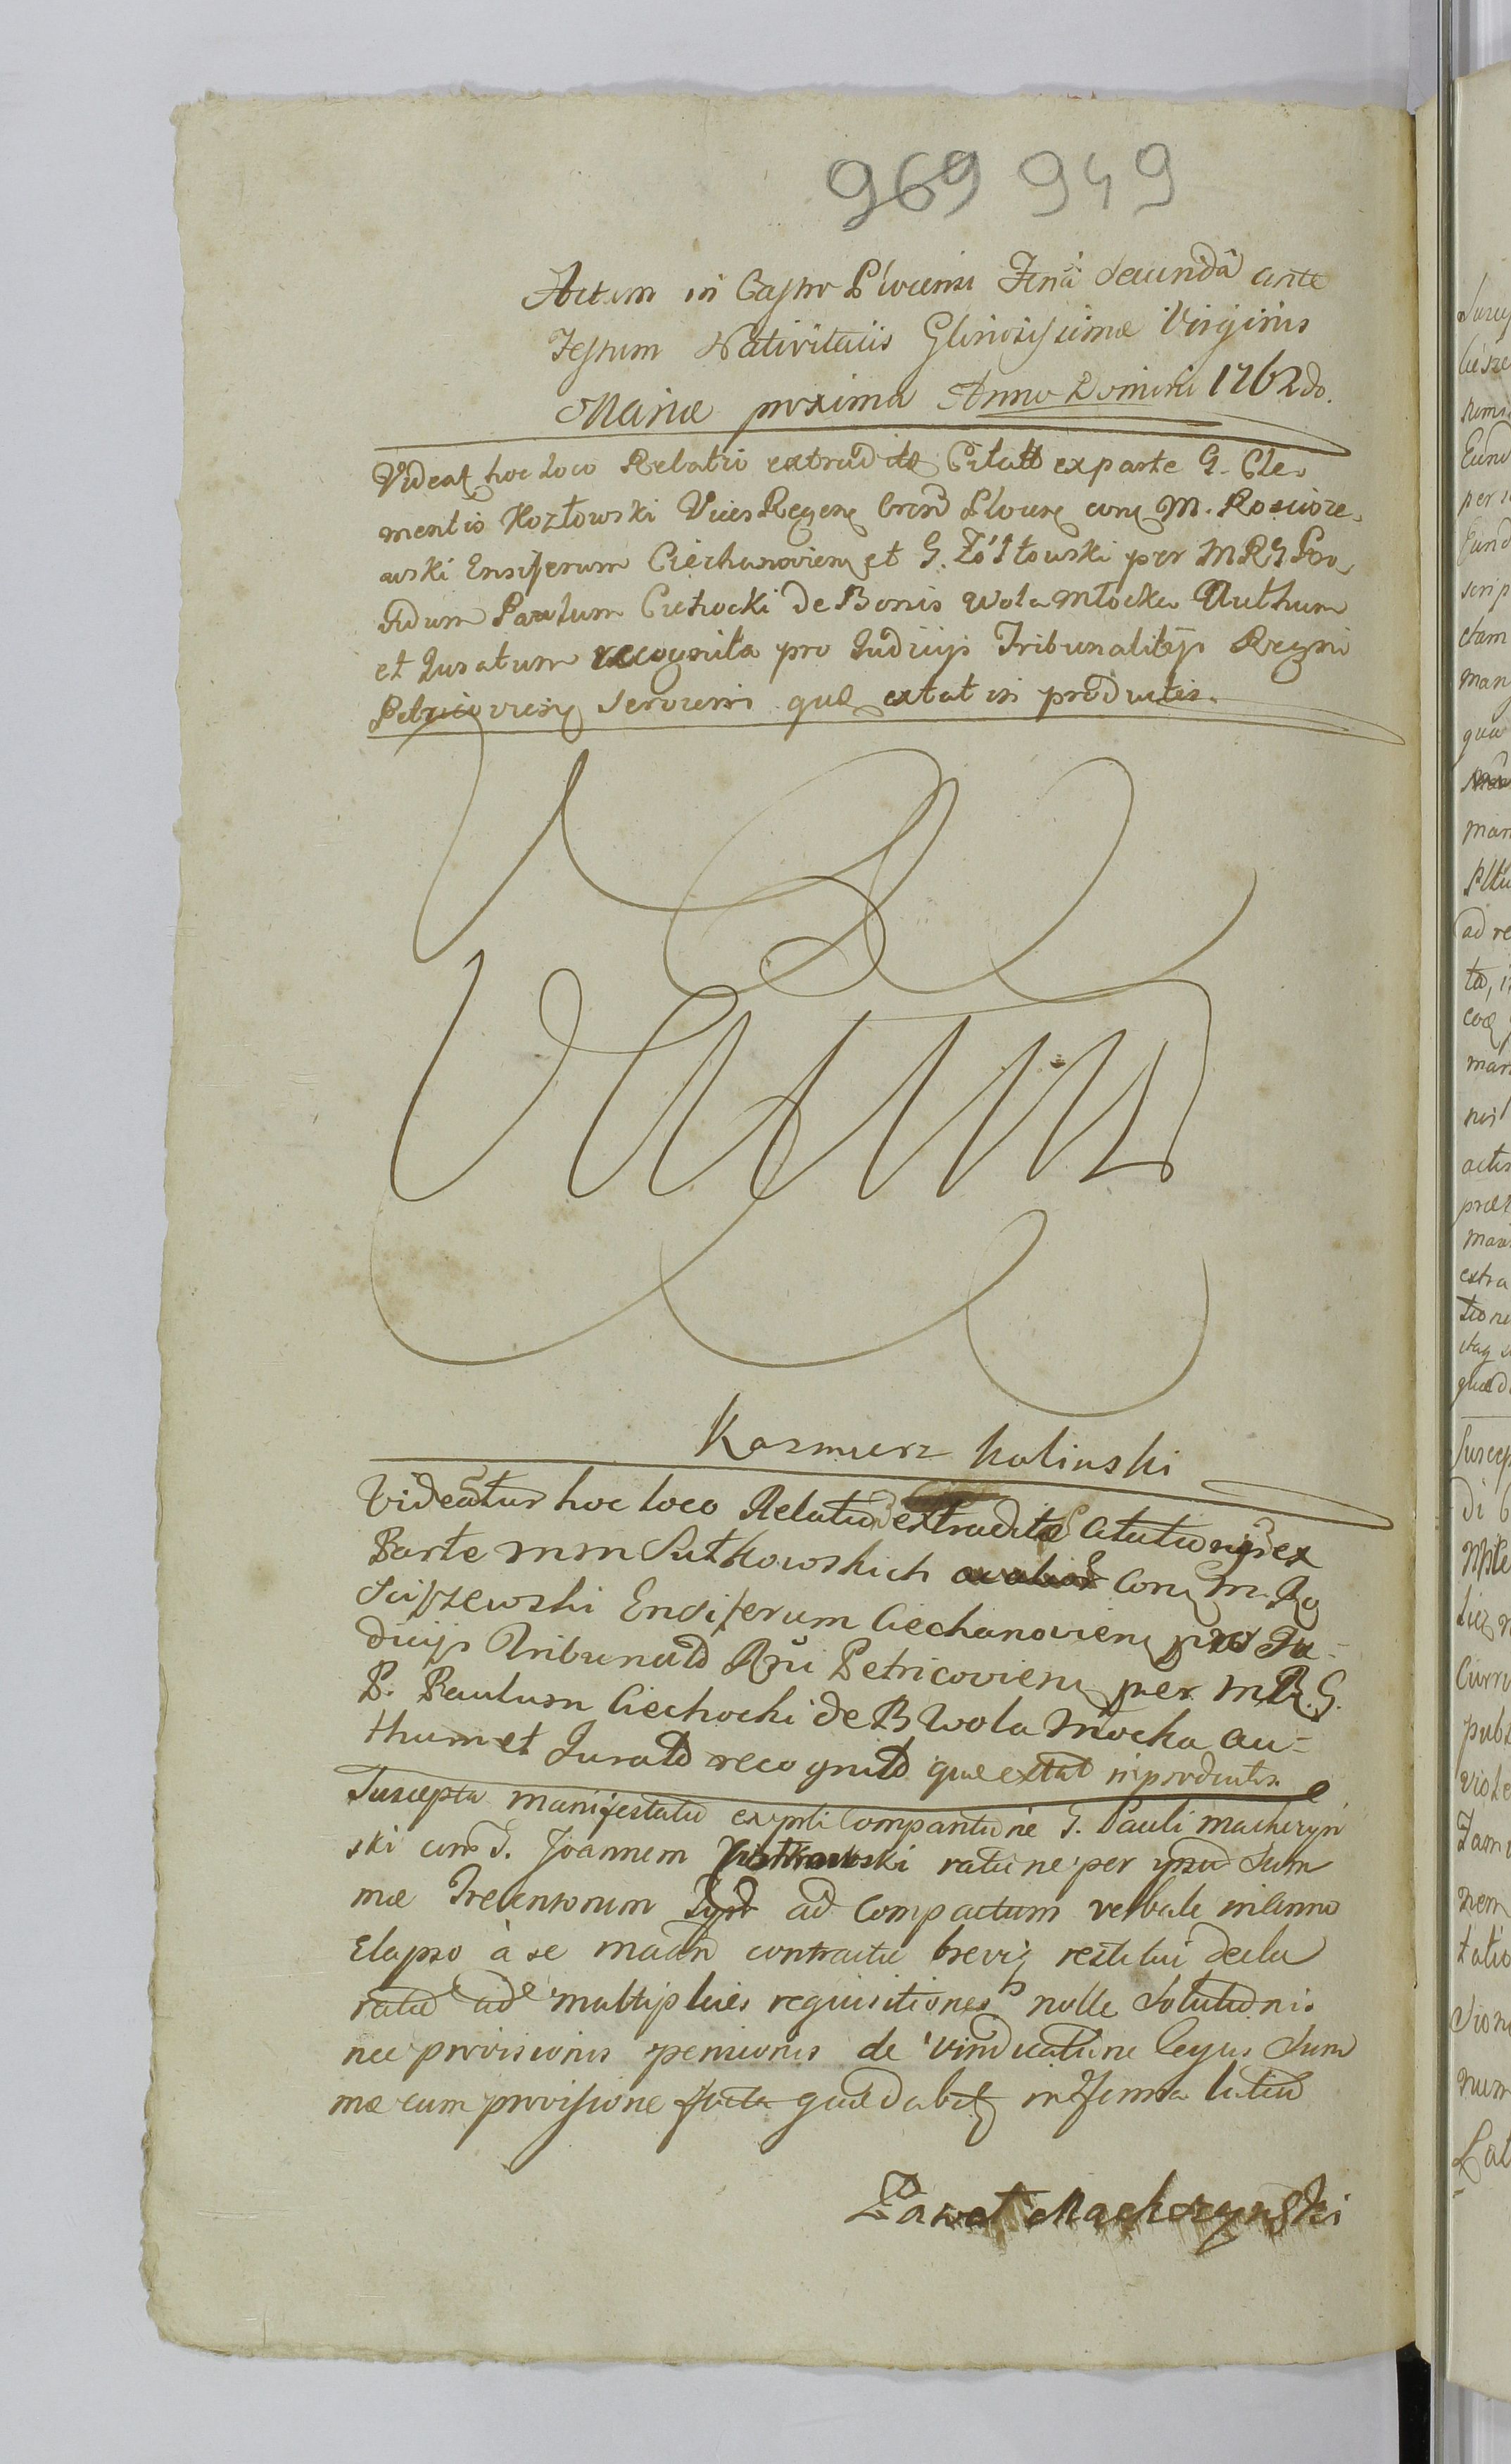 969 949
Actum in Castro Plocensi Feria Secunda ante
Festum Nativitatis Gloriosissimæ Virginis
Mariæ proxima Anno Domini 1762do.
Videat hoc loco Relatio extraditæ Citatt ex parte G. Cle-
mentis Kozłowski Vices Regens Cren Plocens cong M. Rosciose-
wski Ensiferum Ciechanoviens et G. Żółtowski per MRG Pro-
vidum Paulum Ciechocki de Bonis Wola Młocka Authum
et Juratum recognita pro Judicijs Tribunalitijs Regni
Petricoviens servienti quæ extat in productis.
Vasat
Kazmierz Kolinski
Videatur hoc loco Relatio extraditæ Citationis ex
Parte mm Sutkowskich cong M. Ro
sciszewski Ensiferum Ciechanoviens pro Ju-
dicijs Tribunatt Rni Petricoviens per MR. G.
P. Paulum Ciechocki de B Wola Młocka au-
thum et Juratt recognitt quæ extat in productis
Suscepta manifestatio ex prti Comparitione G. Pauli Macherzyn
ski con G. Joannem ratione per ipsum Sum
mæ Trecentorum ad Compactum verbale in Anno
Elapso à se contractu brevi restitui decla
rato ad multiplices requisitiones nolle Solutionis
nec provisionis pensionis de vindicatione Sum
mæ cum provisione facta quæ dabit in Forma
Paweł Macherzynski